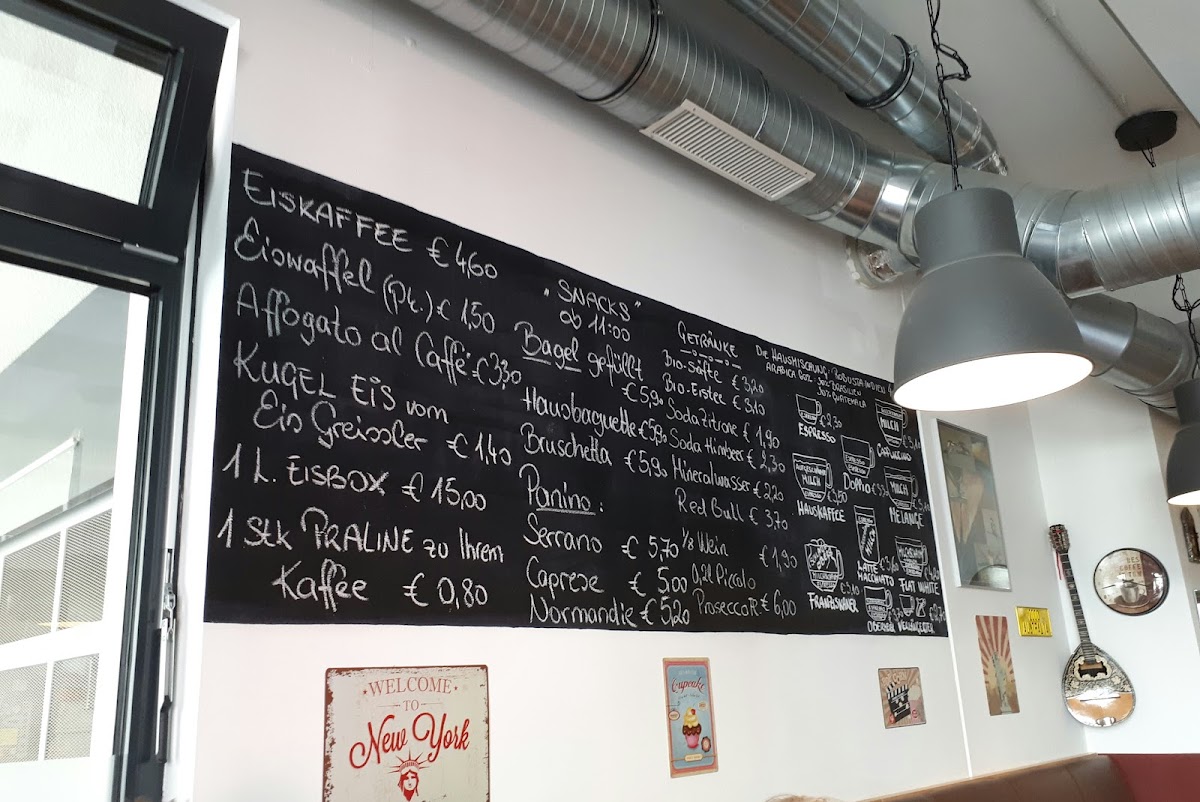 EISKAFFEE € 4,60
Eiswaffel (Pt.) € 1,50
Affogato al Caffè € 3,30
KUGEL EIS vom
Eis Greissler € 1,40
1 L. EISBOX € 15,00
1 Stk PRALINE zu Ihrem
Kaffee € 0,80
"SNACKS"
ab 11:00
Bagel gefüllt
€ 5,90
Hausbaguette € 5,90
Bruschetta € 5,90
Panino:
Serrano € 5,70
Caprese € 5,00
Normandie € 5,20
GETRÄNKE
Bio-Säfte € 3,20
Bio-Eistee € 3,10
Soda Zitrone € 1,90
Soda Himbeer € 2,30
Mineralwasser € 2,20
Red Bull € 3,70
1/8 Wein € 1,90
0,2l Piccolo
Prosecco € 6,00
Die HAUSMISCHUNG: ROBUSTA INDIEN
ARABICA 60% 30% BRASILIEN
30% GUATEMALA
€ 2,30
ESPRESSO
MILCH
CAPPUCCINO
Doppio
MILCH
HAUSKAFFEE
MILCH
MELANGE
LATTE
MACCHIATO
FLAT WHITE
FRANZISKANER
VERLÄNGERTER
WELCOME
TO
New York
Cupcake